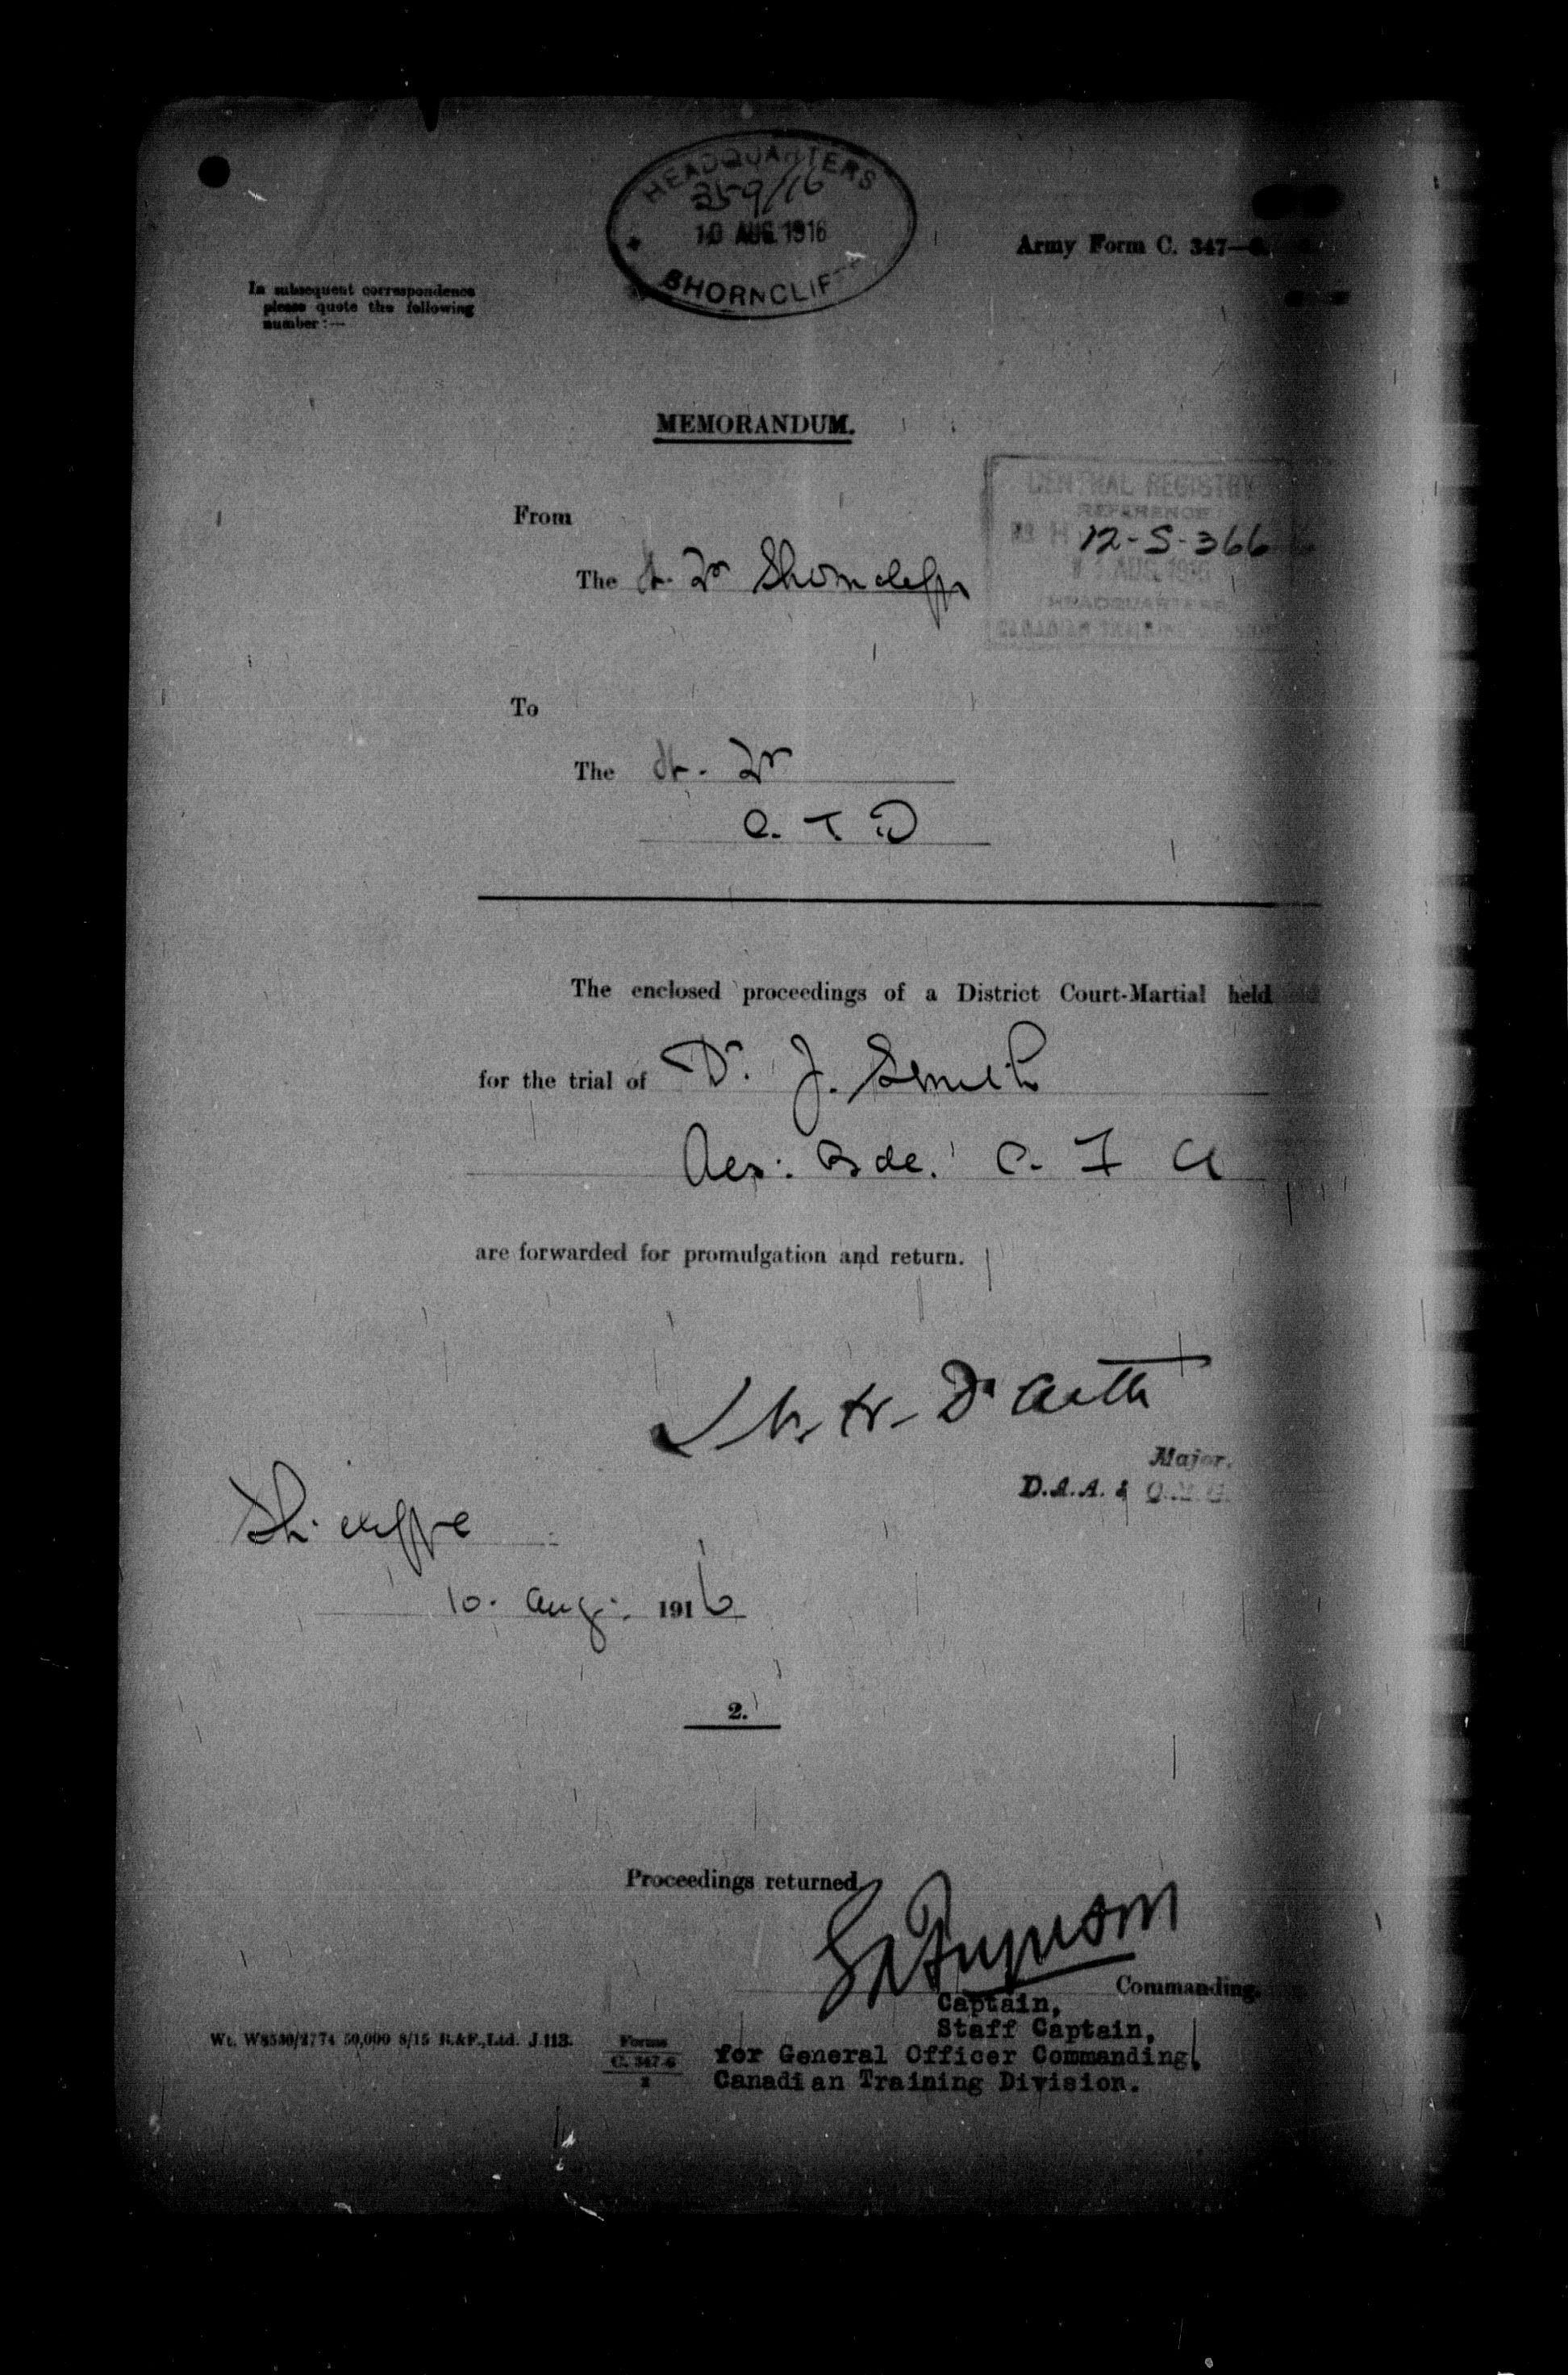 HEADQUARTERS
359/16
10 AUG 1916
SHORNCLIFFE
Army Form C. 347—
In subsequent correspondence
please quote the following
number:—
MEMORANDUM.
CENTRAL REGISTRY
REFERENCE
12-S-366
AUG 1916
HEADQUARTERS
CANADIAN TRAINING
From
The Shorncliffe
To
The
C. T. D
The enclosed proceedings of a District Court-Martial held
for the trial of Dr. J. Smith
Res: Bde. C. F A
are forwarded for promulgation and return.
Major.
D.A.A. & Q.M.G.
Sh: cliffe
10. Aug: 1916
2.
Proceedings returned.
Commanding.
Captain,
Staff Captain,
for General Officer Commanding,
Canadian Training Division.
Wt. W8530/2774 50,000 8/15 R.&F.,Ltd. J.113.
Forms
C. 347-6